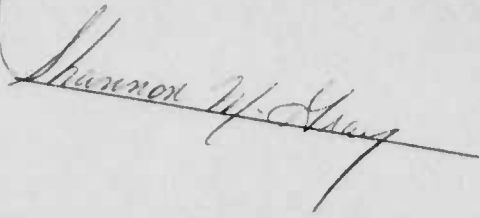 Shannon M. Gray